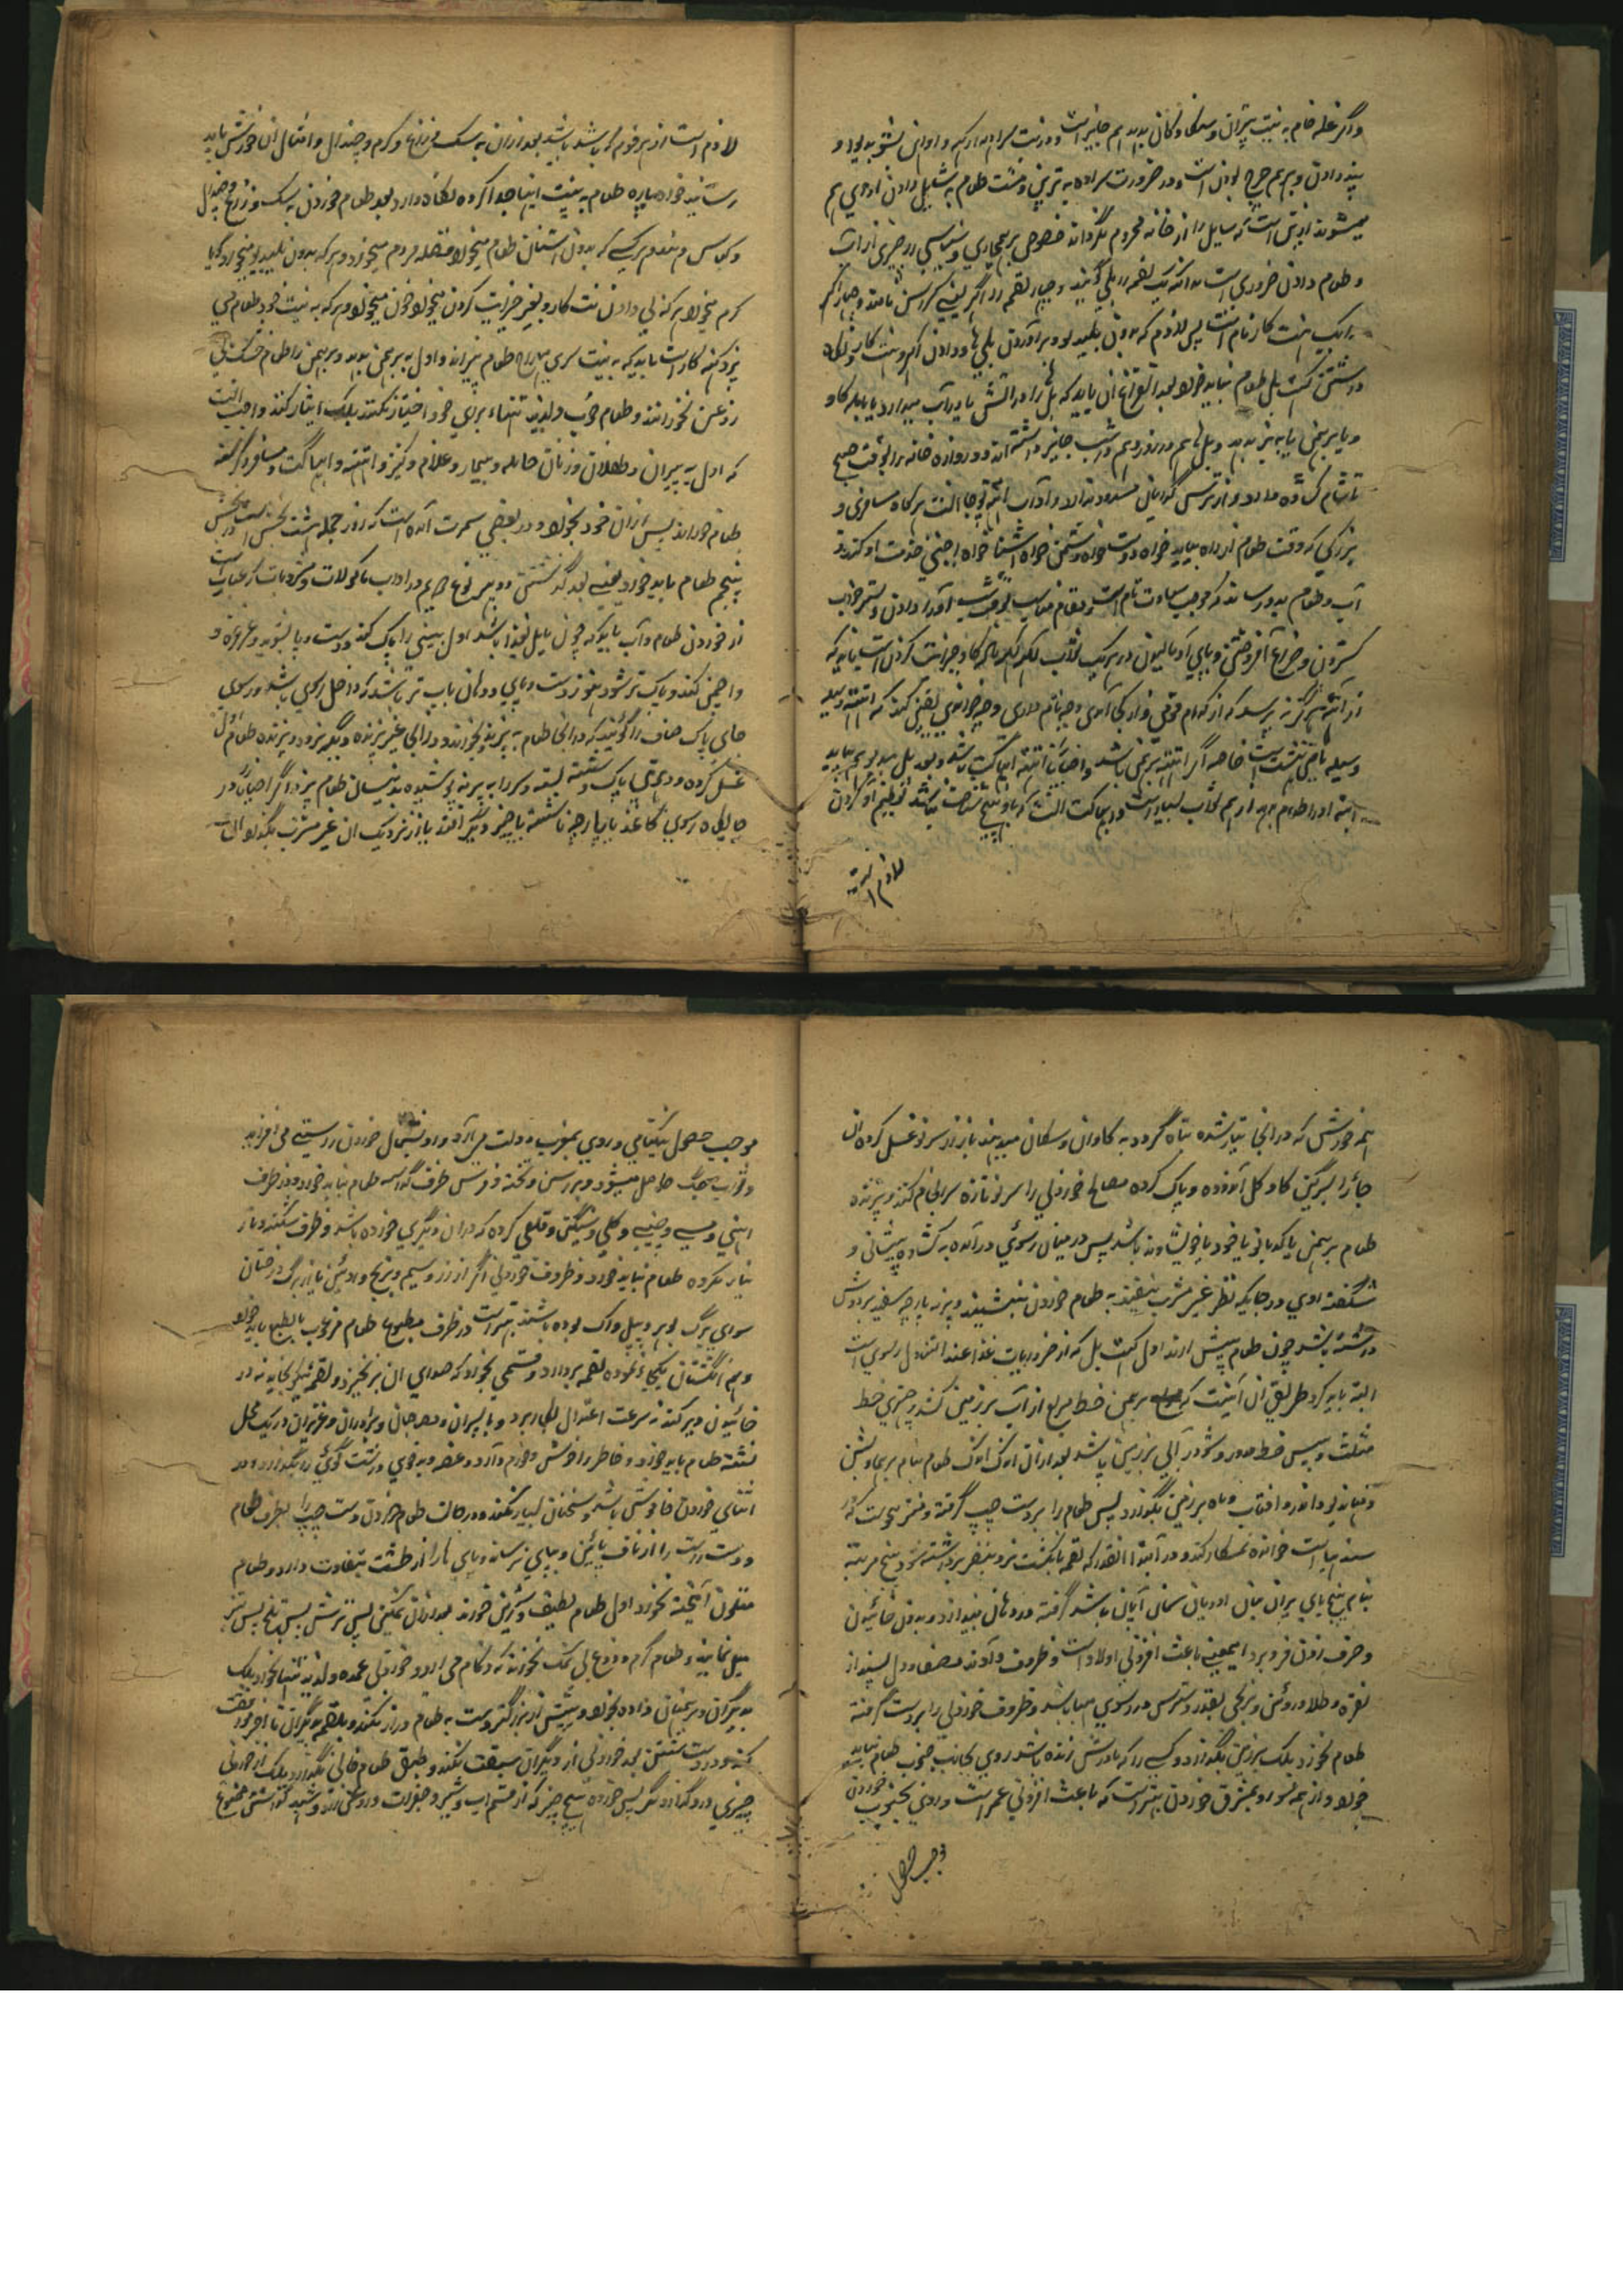 واگر غله خام به نیت پتران و سکا و کان بدهد هم جایز است و در نیت
پند دادن و برهم چرج بودن است و در ضرورت سراده به تربن و مشت طعام به سایل دادن او هم
میشوند او بس است که سایل را از خانه محروم نگرداند خصوص برهمچاری و سنیاسی را چیزی از آب
و طعام دادن ضروری است بدانکه یک لقمه را بلی گویند و چهار لقمه را اگر یعنی گراس نامند و چهار اگر
را یک هنت کار نام است پس لازم که بدون بلیدیو و برآوردن بلی ها و دادن اگر و هنت کار و نگاه
داشتن گت بل طعام نباید خورد بعد الفراغ آن باید که بل را در آتش یا در آب میدارد یا بماده گاو
و یا برهمن یا به بز بدهد و بل هم در روز و هم در شب جایز داشته اند و دروازه خانه را بوقت صبح
تا شام کشاده دارد و از ترس گدایان مسدود ندارد و آداب اتتهه پوجا آنست هرگاه مسافری و
بزرگی که وقت طعام از راه بیاید خواه دوست خواه دشمن خواه آشنا خواه اجنبی خدمت او کند و
آب و طعام بدو رساند که موجب سعادت تام است و مقام مناسب بوقت شب او را دادن و بستر خواب
گستردن و چراغ افروختن و پای او مالیدن در هر یک ثواب لکهه لکهه ماده گاو خیرات کردن است باید که
از اتتهه هرگز نه پرسد که از کدام قومی و از کجا آمدی و چه نام داری و چه خوانده یقین کند که اتتهه وسیله
وسیله یافتن بهشت است خاصه اگر اتتهه برهمن باشد و احیانا اتتهه ابهیاگت باشد و بعد بل بیدیو هم بیاید
البته او را طعام بدهد از هم ثواب بسیار است و ابهیاگت آنست که با او هیچ شناخت نباشد تعظیم او کردن
لازم است
لازم است از هر قوم که باشد باشد بعد از آن به سگ و زاغ و کرم و چندال و امثال آن خورش باید
رسانید خواه پاره طعام به نیت اینها جدا کرده نگاه دارد بعد طعام خوردن به سگ و زاغ و چندال
هر کسی که بدون اشنان طعام میخورد فضله مردم میخورد و هر که بدون بلیدیو میخورد گویا
کرم میخورد هر که بی دادن هنت کار و بغیر خیرات کردن میخورد خون میخورد و هر که به نیت خود طعام می
پزد گنه کار است باید که به نیت سری مهاراج طعام پزاند و اول به برهمن بدهد و برهمن را طعام خشک بی
روغن نخوراند و طعام خوب و لذیذ تنها برای خود اختیار نکند بلکه ایثار کند و واجب آنست
که اول به پیران و طفلان و زنان حامله و بیمار و غلام و کنیز و اتتهه و ابهیاگت و مسافر و گرسنه
طعام خوراند پس از آن خود بخورد و در بعضی سمرت آمده است که روز جمله هشت بخش است در بخش
پنجم طعام باید خورد یعنی بعد گذشتن دو پهر نوع چهارم در آداب ماکولات و مشروبات که عبارت است
از خوردن طعام و آب باید که چون مایل بغذا باشد اول بینی را پاک کند و دست و پا بشوید و غرغره و
آچمن کند و پاک تر شود هنوز دست و پای و دهان باب تر باشد که داخل رسوی باشد و رسوی
جای پاک صاف را گویند که در آنجا طعام به پزند و بخورند و در آنجا غیر پزنده دیگر نرود و پزنده طعام اول
غسل کرده و دهوتی پاک شسته بسته و سر را به پرنه پوشیده بدینسان طعام پزد اگر احیانا در
چوکه رسوی کاغذ یا پارچه ناشسته یا چیز دیگر افتد یا از نزدیک آن غیر مشرب بگذرد آن
همه خورش که در آنجا تیار شده تباه گردد به گاوان و سگان میدهند باز از سر نو غسل کرده آن
جای را بسرگین گاو و گل آلوده و پاک کرده مصالح خوردنی را سر نو تازه سرانجام کند و پزنده
طعام برهمن یا کدبانو یا خود یا خویشاوند باشد پس در میان رسوی درآمده به گشاده پیشانی و
شگفته روی در جائیکه نظر غیر مشرب نیفتد به طعام خوردن بنشیند و پرنه پارچه سفید بر دوش
داشته باشد چون طعام پیش آرند اول گت بل که از ضروریات غذا عند التناول رسوی است
البته باید کرد طریق آن اینست که برهمن خط مربع از آب بر زمین کشد و چهتری خط
مثلث و بیس خط مدور و شودر آبی بر زمین پاشد بعد از آن اندک اندک طعام بنام برهما و بشن
و مهادیو و اندر و آفتاب و ماه بر زمین بگذارد پس طعام را بر دست چپ گرفته و منتر جوست که در
بید است خوانده نمسکار کند و در ابتدا آنقدر که لقمه بانگشت نر و بنصر برداشته شود پنج مرتبه
بنام پنج بای پران بیان اودیان سمان آپان باشد گرفته در دهان بیندازد و بدون خائیدن
و حرف زدن فرو برد اینمعنی باعث افزونی اولاد است و ظروف و آوند مصفا و دل پسند از
نقره و طلا و روئین و برنجی بقدر دسترس در رسوی مهیا باشد و ظروف خوردنی را بر دست گرفته
طعام نخورد بلکه بر زمین بگذارد و کسی را که مادرش زنده باشد روی بجانب جنوب طعام نباید
خورد و از همه سو رو بمشرق خوردن بهتر است که باعث افزونی عمر است و روی بجنوب خوردن
موجب حصول
موجب حصول نیکنامی و روی بمغرب دولت می آرد و رو بشمال خوردن راستی می افزاید
و ثواب جگ حاصل میشود و بر رسن و تخته و فرش ظرف گذاشته طعام نباید خورد و در ظرف
آهنی و مسی و چینی و گلی و سنگین و قلعی کرده که در آن دیگری خورده باشد و ظرف شکسته و ناز
تیار نکرده طعام نباید خورد و ظروف خوردنی اگر از زر و سیم و برنج و روئین یا از برگ درختان
سوای برگ بر و پیپل و آک بوده باشند بهتر است در ظرف مطبوع طعام مرغوب بالطبع باید خورد
و همه انگشتان یکجا نموده لقمه بردارد و قسمی بخورد که صدای آن بر نخیزد و لقمه نیکو بخاید نه در
خائیدن دیر کند نه سرعت اعتدال بکار برد و با پسران و مصاحبان و برادران و عزیزان در یک محل
نشسته طعام باید خورد و خاطر را خوش و خرم دارد و غصه و بدخوی و درشت گوئی را بگذارد و در
اثنای خوردن خاموش باشد و سخنان بسیار نکند و در حالت طعام خوردن دست چپ را بطرف طعام
و دست راست را از ناف پائین و بپای نرساند و پای ها را از طشت بتفاوت دارد و طعام
متلون آمیخته نخورد اول طعام لطیف و شیرین خورند بعد از آن نمکین پس ترش پس تلخ پس تیز
میل نمایند و طعام گرم و دوغ بی نمک نخورند که زکام می آرد و خوردنی عمده و لذیذ تنها نخورد بلکه
بدیگران و برهمنان داده بخورد و پیش از بزرگتر دست به طعام دراز نکند و بلقمه دیگران تا آخر موافقت
کند و در دست شستن بعد خوردنی از دیگران سبقت نکند و طبق طعام خالی نگذارد بلکه از خوردنی
چیزی در او گذارد مگر پس خورده هیچ چیز که از قسم آب و شیر و جغرات و روغن زرد و شهد گذاشتن ممنوع